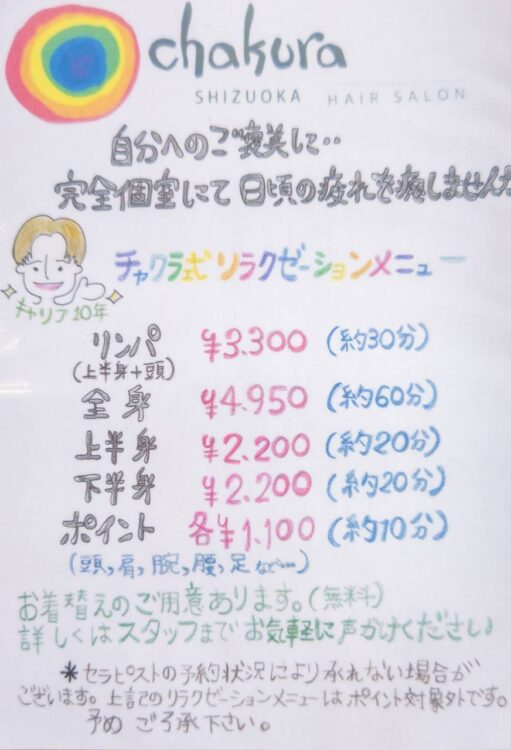 chakura
SHIZUOKA HAIR SALON
自分へのご褒美に‥
完全個室にて日頃の疲れを癒しません
チャクラ式リラクゼーションメニュー
キャリア10年
リンパ ¥3.300 (約30分)
(上半身+頭)
全身 ¥4.950 (約60分)
上半身 ¥2.200 (約20分)
下半身 ¥2.200 (約20分)
ポイント 各¥1.100 (約10分)
(頭、肩、腕、腰、足など…)
お着替えのご用意あります。(無料)
詳しくはスタッフまでお気軽に声かけください
*セラピストの予約状況により承れない場合が
ございます。上記のリラクゼーションメニューはポイント対象外です。
予めご了承下さい。